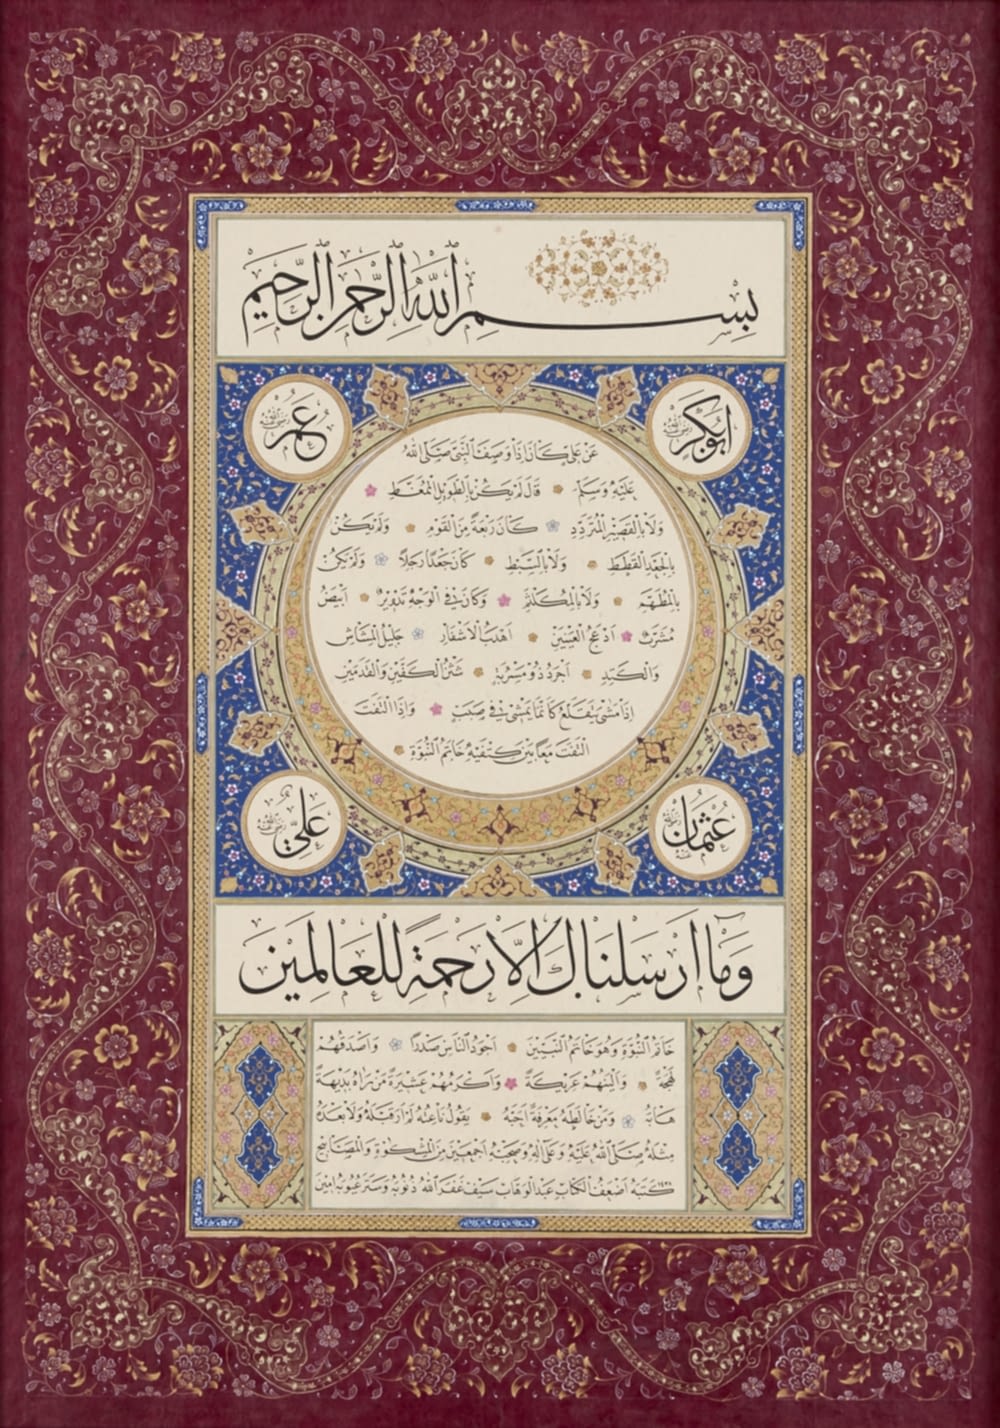 بِسْمِ اللَّهِ الرَّحْمٰنِ الرَّحِيمِ
ابوبكر رضي الله عنه
عمر رضي الله عنه
عن علي كان اذا وصف النبي صلى الله
عليه وسلم قال لم يكن بالطويل الممغط
ولا بالقصير المتردد كان ربعة من القوم ولم يكن
بالجعد القطط ولا بالسبط كان جعدا رجلا ولم يكن
بالمطهم ولا بالمكلثم وكان في الوجه تدوير ابيض
مشرب ادعج العينين اهدب الاشفار جليل المشاش
والكتد اجرد ذو مسربة شثن الكفين والقدمين
اذا مشى يتقلع كانما يمشي في صبب واذا التفت
التفت معا بين كتفيه خاتم النبوة
عثمان رضي الله عنه
علي رضي الله عنه
وما ارسلناك الا رحمة للعالمين
خاتم النبوة وهو خاتم النبيين اجود الناس صدرا واصدقهم
لهجة والينهم عريكة واكرمهم عشيرة من رآه بديهة
هابه ومن خالطه معرفة احبه يقول ناعته لم ار قبله ولا بعده
مثله صلى الله عليه وعلى آله وصحبه اجمعين من المشكوة والمصابيح
كتبه اضعف الكتاب عبد الوهاب سيف غفر الله ذنوبه وستر عيوبه امين